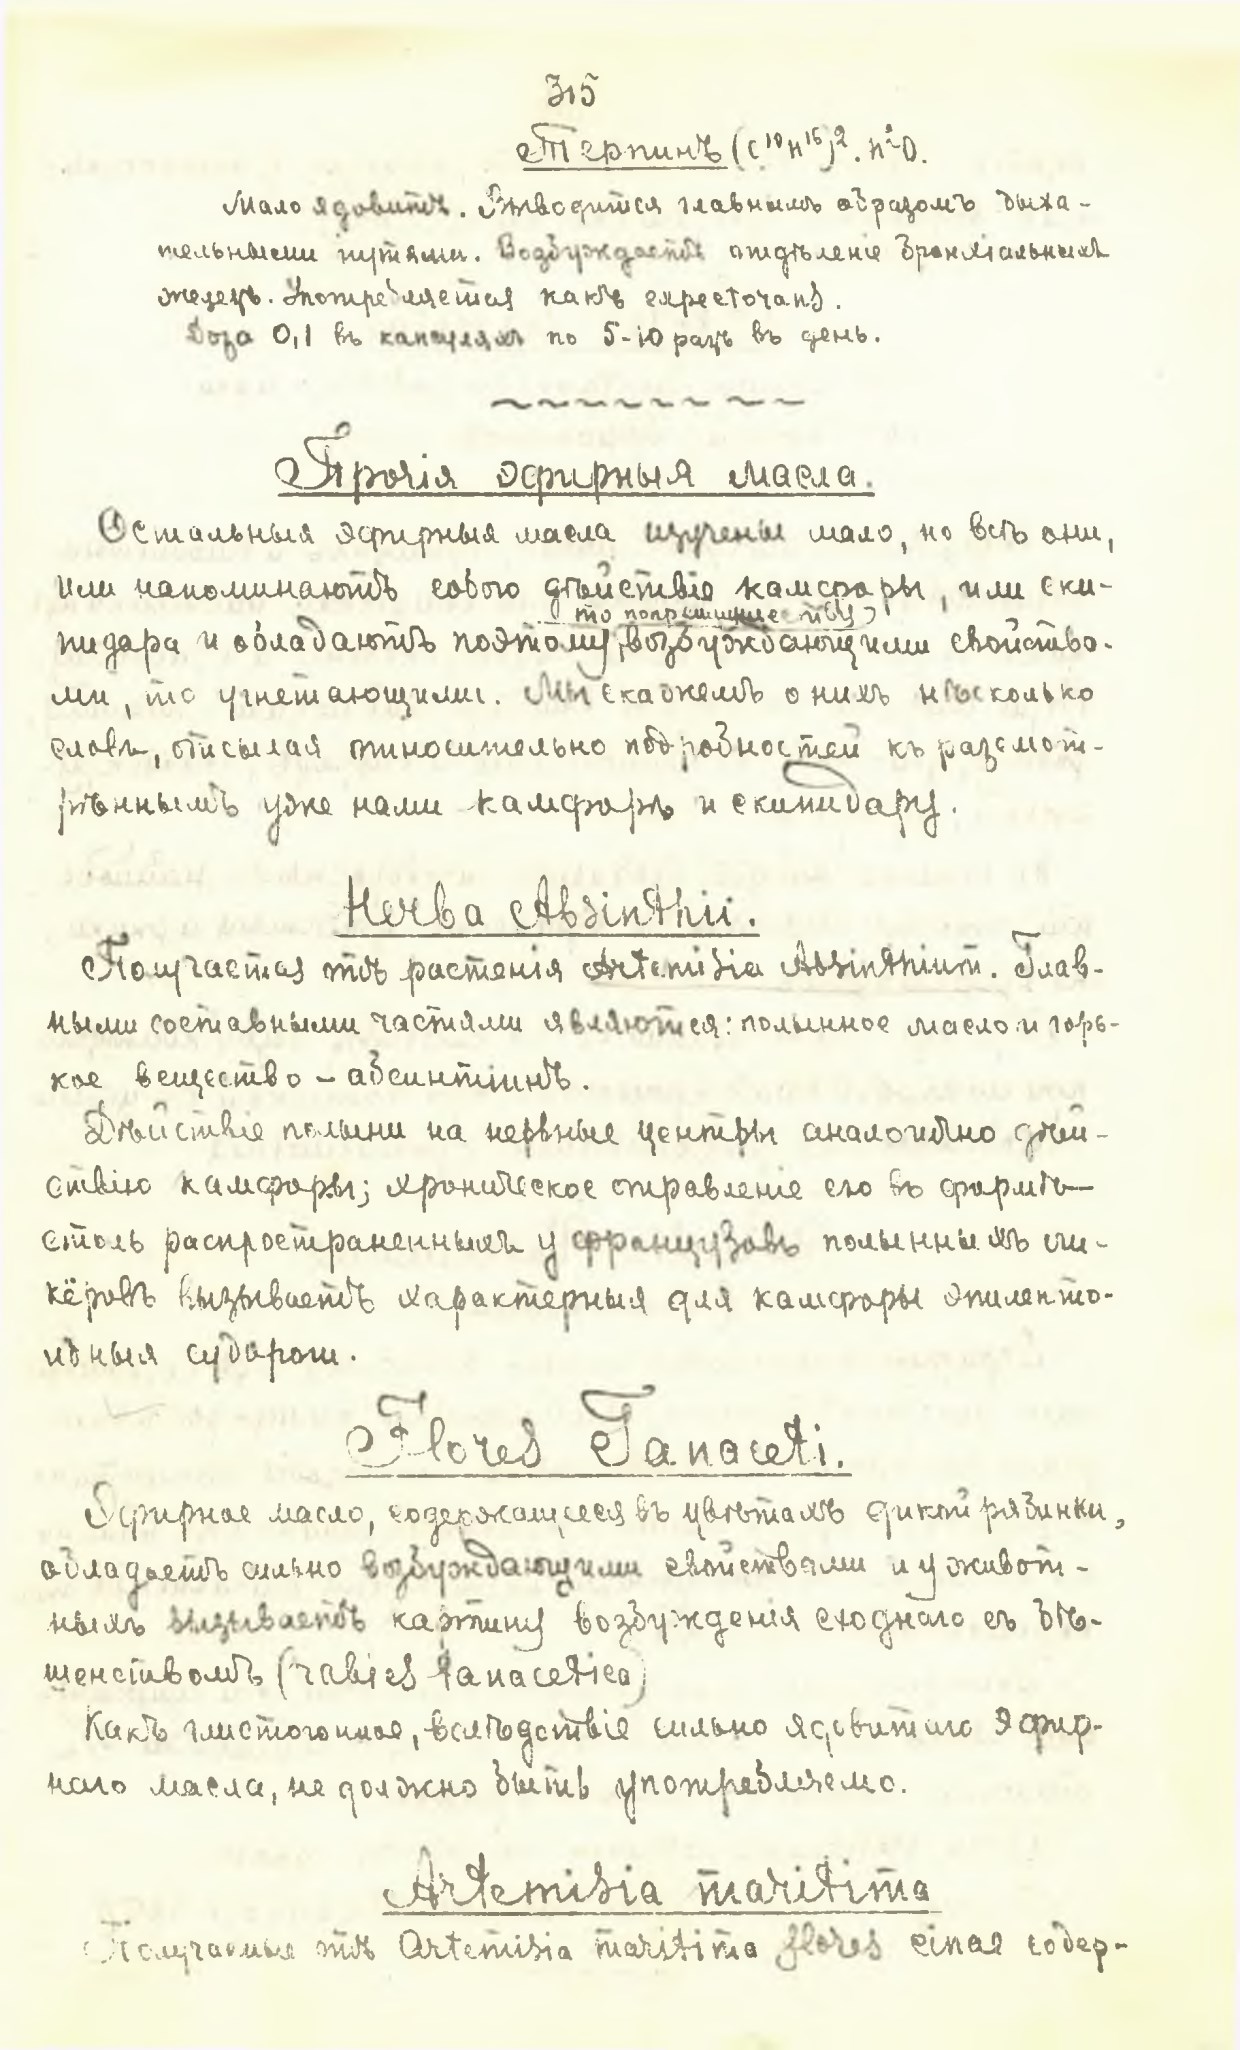 315
Терпинъ (C¹⁰H¹⁶)². H²O.
Мало ядовитъ. Выводится главнымъ образомъ дыха-
тельными путями. Возбуждаетъ отдѣленіе бронхіальныхъ
железъ. Употребляется какъ expectorans.
Доза 0,1 въ капсуляхъ по 5-10 разъ въ день.
Прочія эфирныя масла.
Остальныя эфирныя масла изучены мало, но всѣ они,
или напоминаютъ собою дѣйствіе камфоры, или ски-
пидара и обладаютъ поэтому, возбуждающими свойства-
ми, то угнетающими. Мы скажемъ о нихъ нѣсколько
словъ, отсылая относительно подробностей къ разсмот-
рѣннымъ уже нами камфорѣ и скипидару.
Herba Absinthii.
Получается отъ растенія Artemisia Absinthium. Глав-
ными составными частями являются: полынное масло и горь-
кое вещество - абсинтіинъ.
Дѣйствіе полыни на нервные центры аналогично дѣй-
ствію камфоры; хроническое отравленіе ею въ формѣ
столь распространенныхъ у французовъ полынныхъ ли-
кёровъ вызываетъ характерныя для камфоры эпилепто-
идныя судороги.
Flores Tanaceti.
Эфирное масло, содержащееся въ цвѣтахъ дикой рябинки,
обладаетъ сильно возбуждающими свойствами и у живот-
ныхъ вызываетъ картину возбужденія сходнаго съ бѣ-
шенствомъ (rabies tanacetica)
Какъ глистогонное, вслѣдствіе сильно ядовитаго эфир-
наго масла, не должно быть употребляемо.
Artemisia maritima
Получаемые отъ Artemisia maritima flores cinae содер-